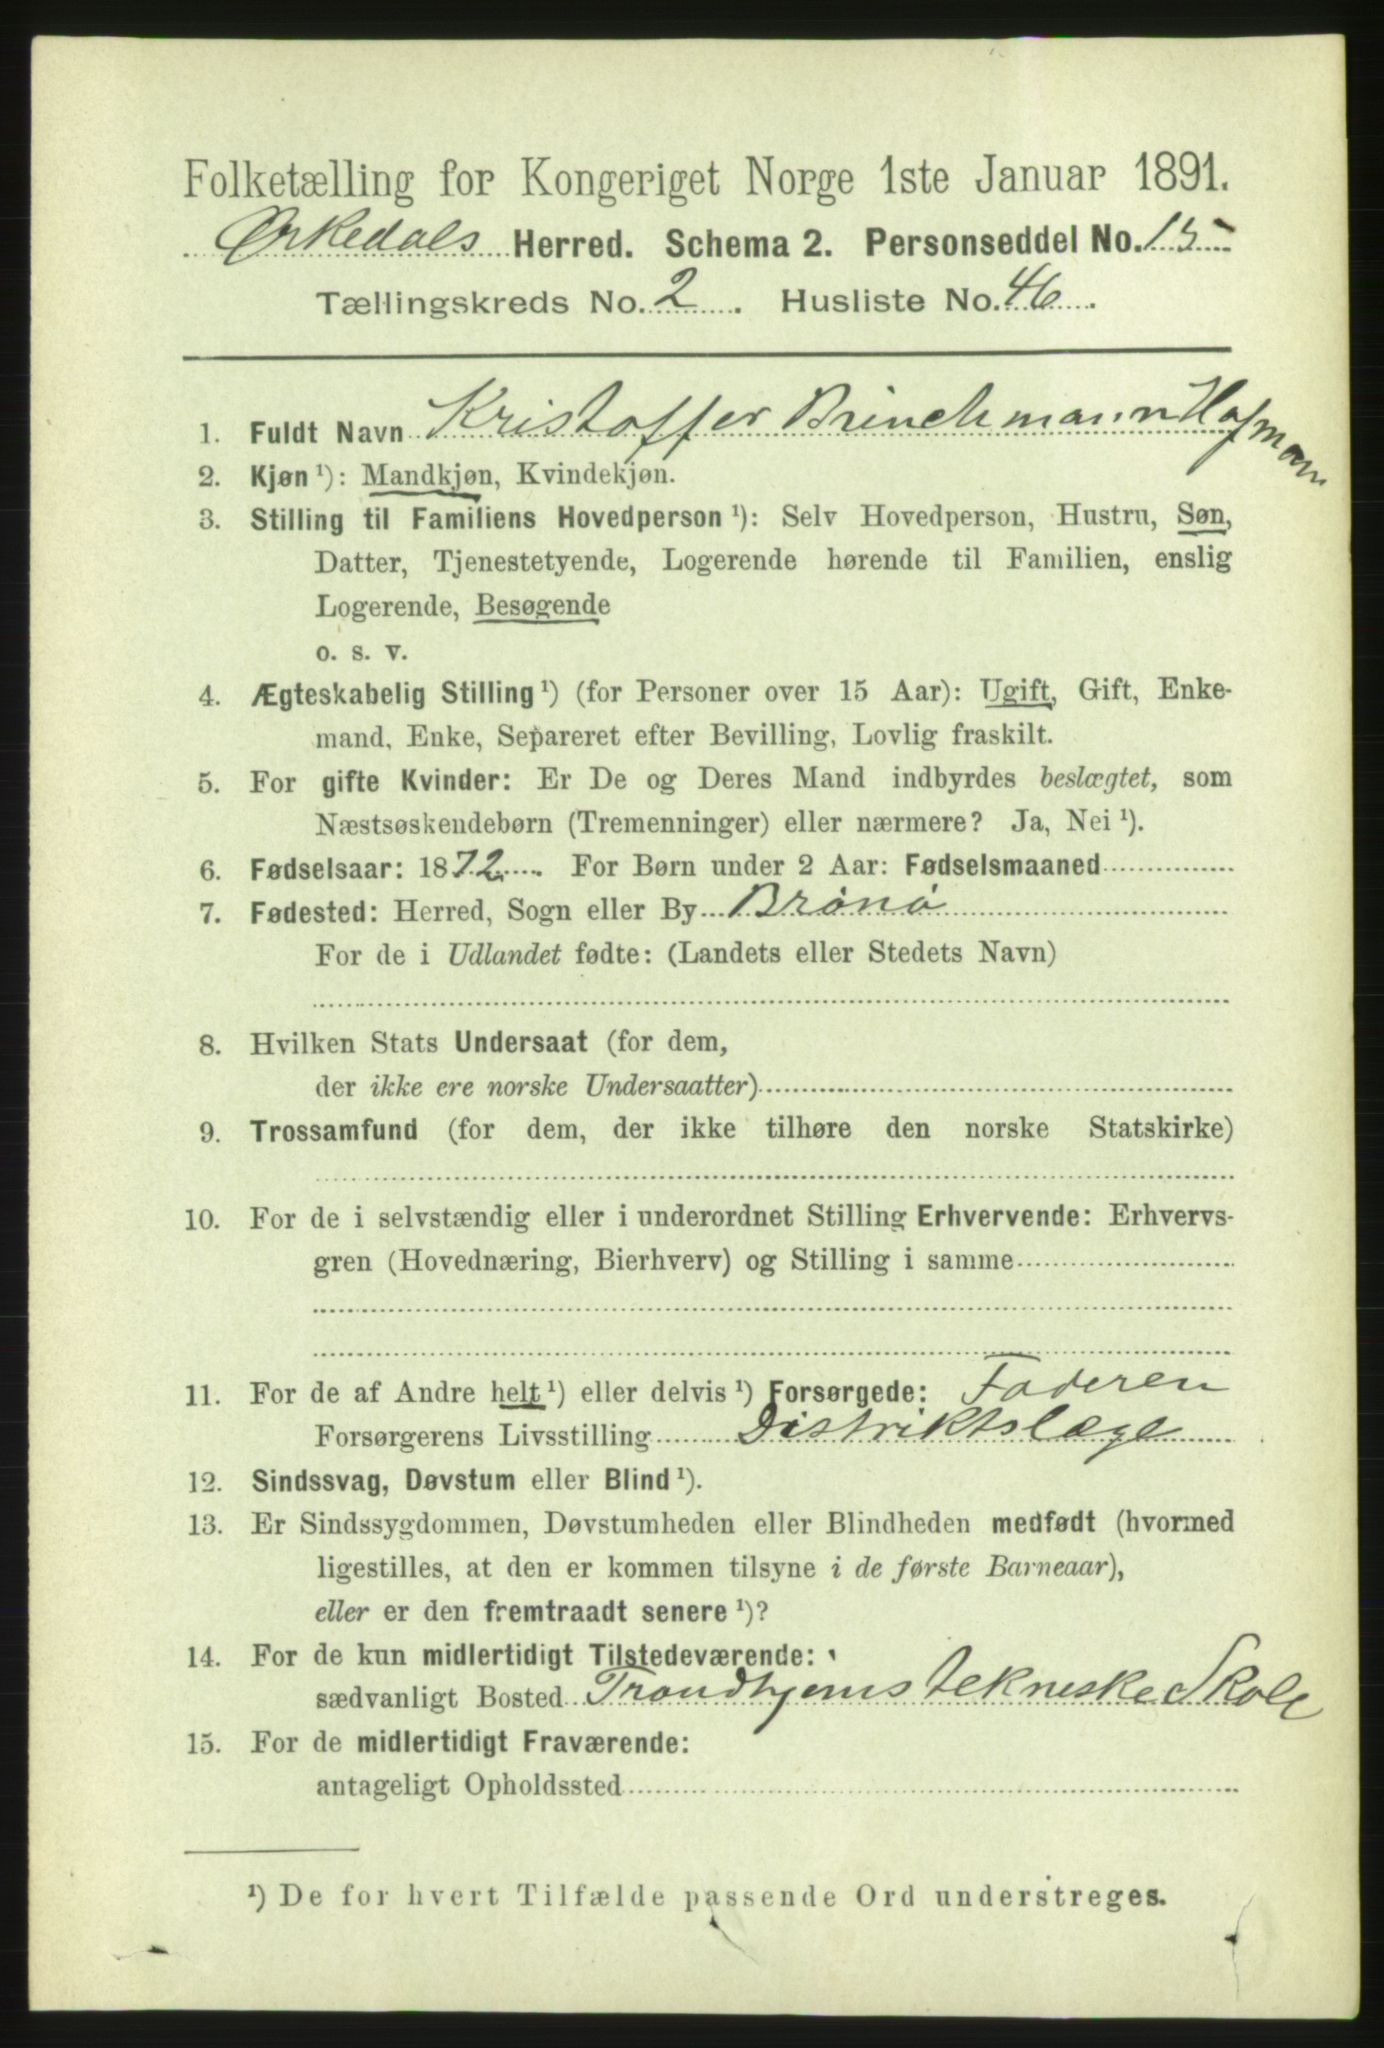 Folketælling for Kongeriget Norge 1ste Januar 1891.
Ørkedals Herred. Schema 2. Personseddel No. 15
Tællingskreds No. 2. Husliste No. 46.
1. Fuldt Navn Kristoffer Brinchmann Hofmann
2. Kjøn ¹): Mandkjøn, Kvindekjøn.
3. Stilling til Familiens Hovedperson ¹): Selv Hovedperson, Hustru, Søn,
Datter, Tjenestetyende, Logerende hørende til Familien, enslig
Logerende, Besøgende
o. s. v.
4. Ægteskabelig Stilling ¹) (for Personer over 15 Aar): Ugift, Gift, Enke-
mand, Enke, Separeret efter Bevilling, Lovlig fraskilt.
5. For gifte Kvinder: Er De og Deres Mand indbyrdes beslægtet, som
Næstsøskendebørn (Tremenninger) eller nærmere? Ja, Nei ¹).
6. Fødselsaar: 1872. For Børn under 2 Aar: Fødselsmaaned
7. Fødested: Herred, Sogn eller By Brønø
For de i Udlandet fødte: (Landets eller Stedets Navn)
8. Hvilken Stats Undersaat (for dem,
der ikke ere norske Undersaatter)
9. Trossamfund (for dem, der ikke tilhøre den norske Statskirke)
10. For de i selvstændig eller i underordnet Stilling Erhvervende: Erhvervs-
gren (Hovednæring, Bierhverv) og Stilling i samme
11. For de af Andre helt ¹) eller delvis ¹) Forsørgede: Faderen
Forsørgerens Livsstilling Distriktslæge
12. Sindssvag, Døvstum eller Blind ¹).
13. Er Sindssygdommen, Døvstumheden eller Blindheden medfødt (hvormed
ligestilles, at den er kommen tilsyne i de første Barneaar),
eller er den fremtraadt senere ¹)?
14. For de kun midlertidigt Tilstedeværende:
sædvanligt Bosted Trondhjems tekneske Skole
15. For de midlertidigt Fraværende:
antageligt Opholdssted
¹) De for hvert Tilfælde passende Ord understreges.